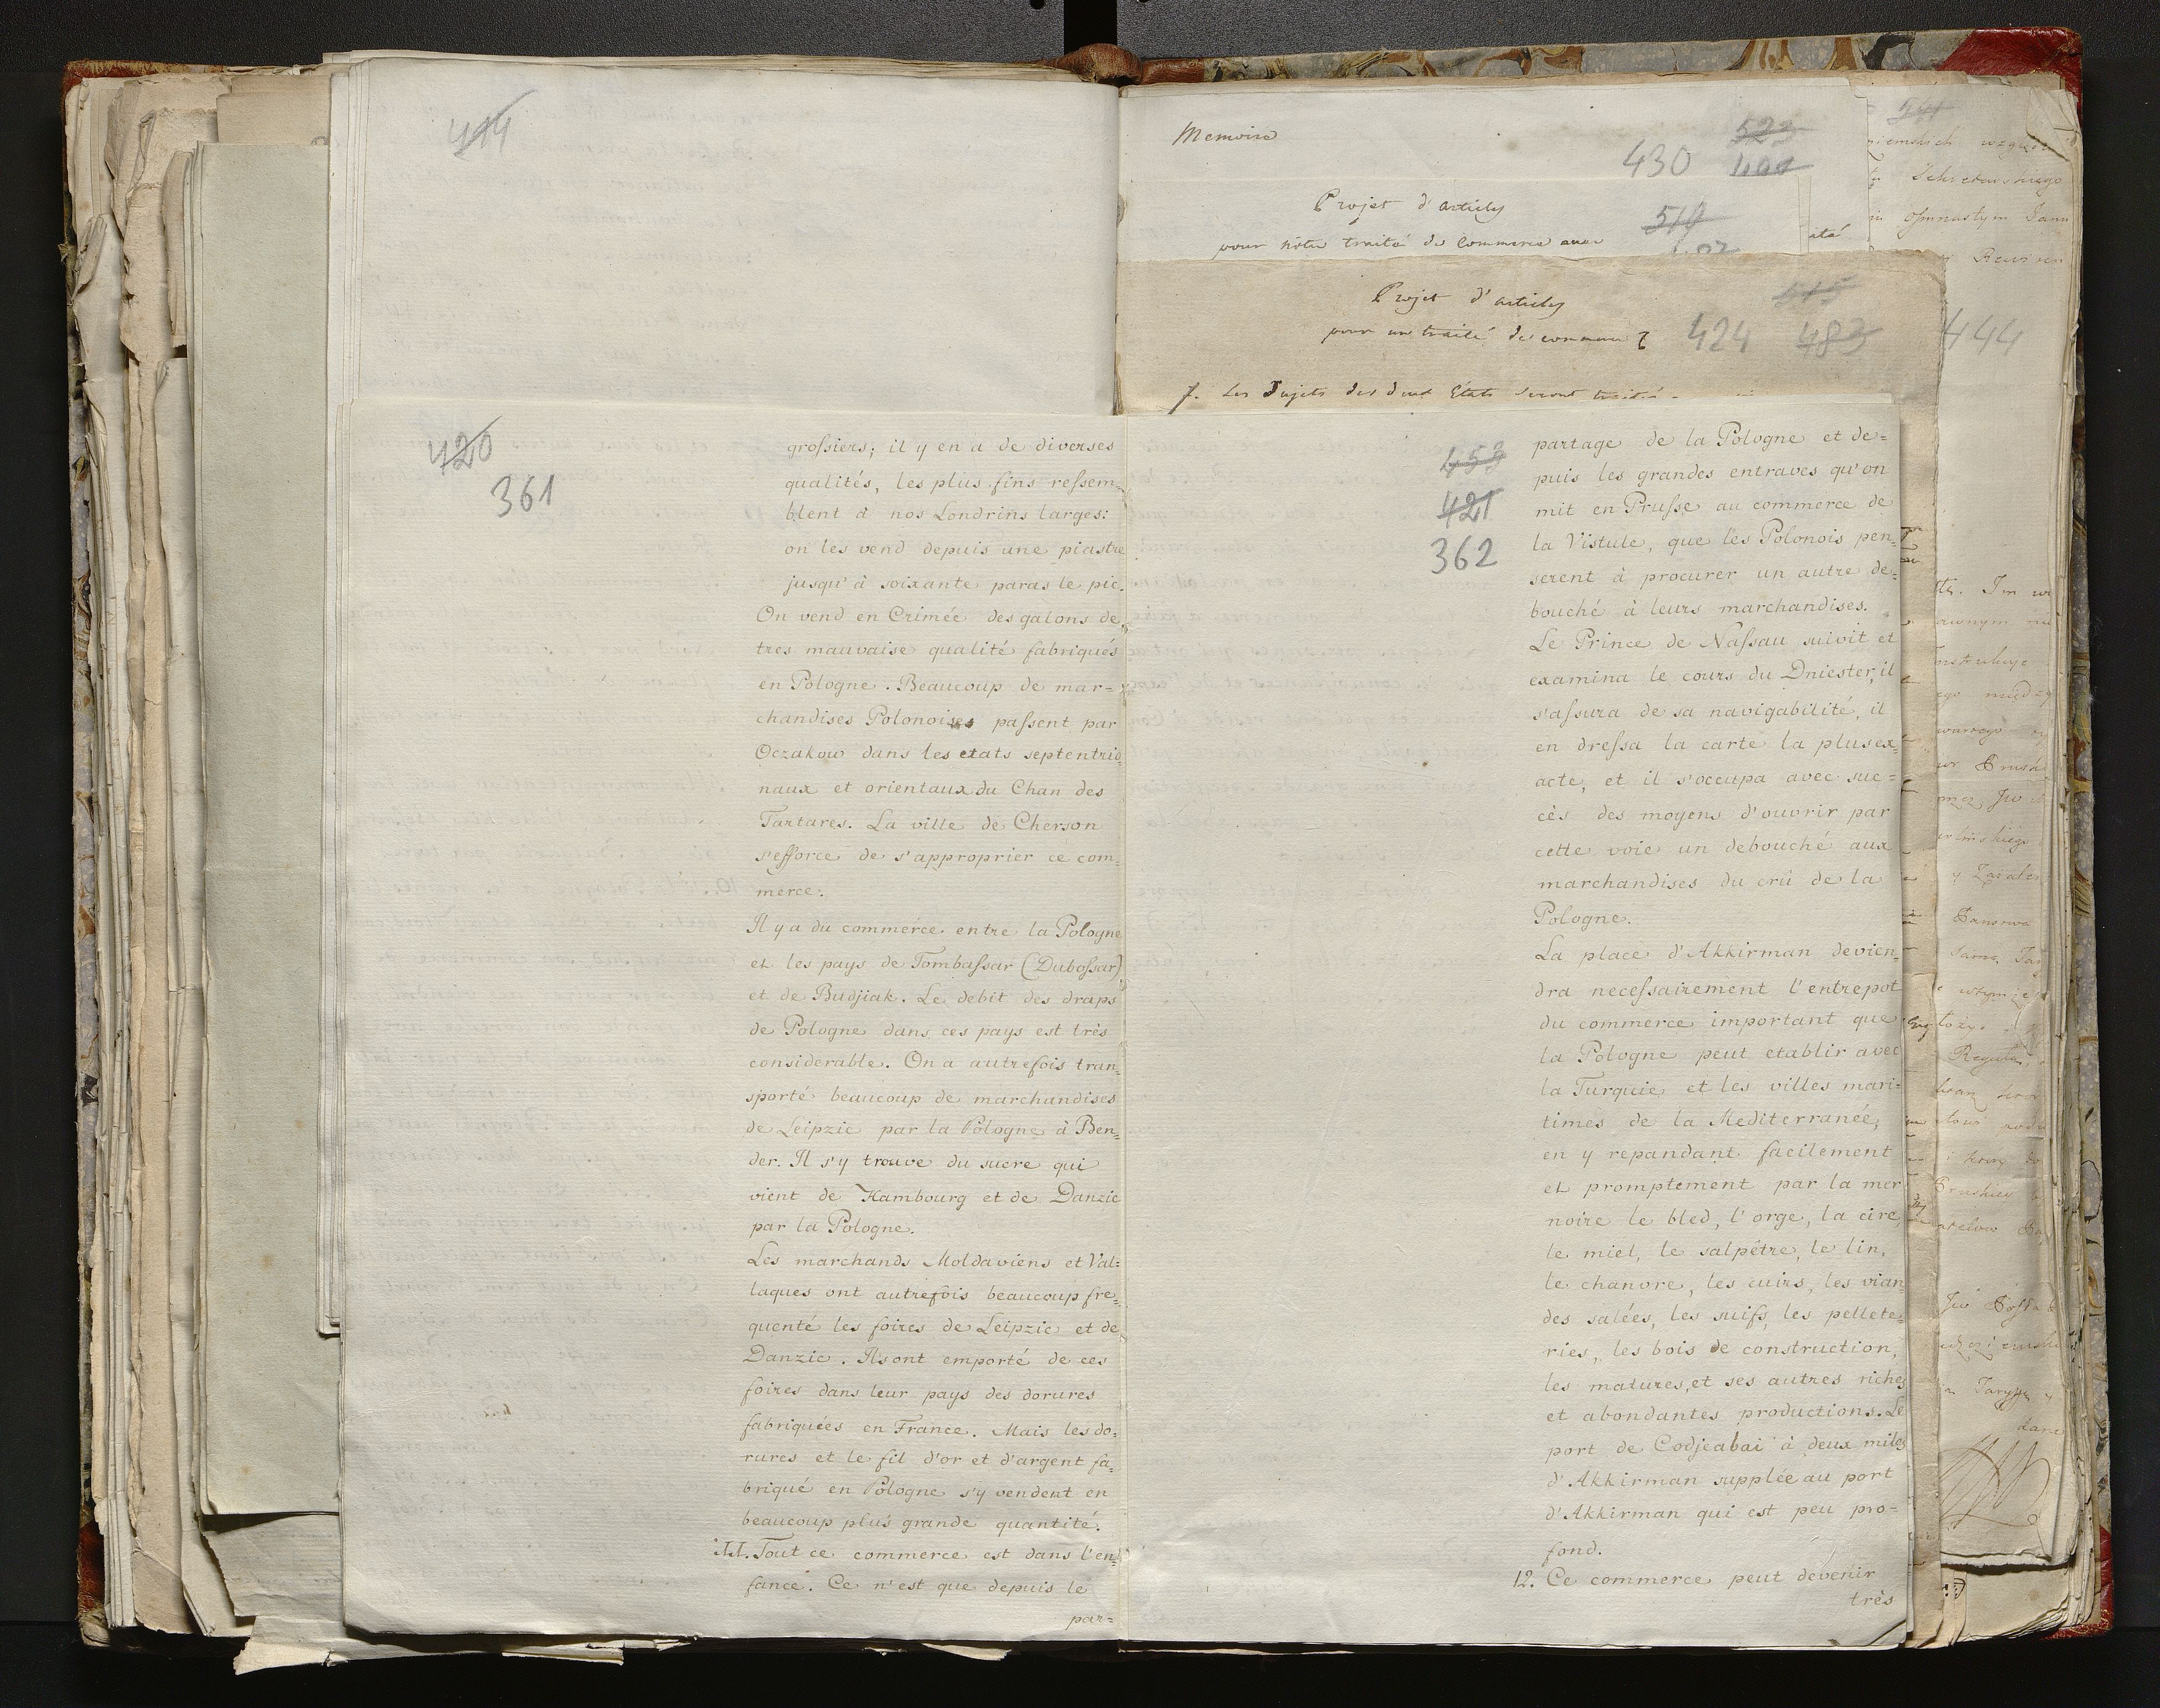 414
420
361
grossiers; il y en a de diverses
qualités, les plus fins ressem=
blent à nos Londrins larges:
on les vend depuis une piastre
jusqu'à soixante paras le pic.
On vend en Crimée des galons de
tres mauvaise qualité fabriqués
en Pologne. Beaucoup de mar=
chandises Polonoises passent par
Oczakow dans les etats septentrio=
naux et orientaux du Chan des
Tartares. La ville de Cherson
s'efforce de s'approprier ce com=
merce.
Il y a du commerce entre la Pologne
et les pays de Tombassar (Dubossar)
et de Budjiak. Le debit des draps
de Pologne dans ces pays est très
considerable. On a autrefois tran=
sporté beaucoup de marchandises
de Leipzic par la Pologne à Ben=
der. Il s'y trouve du sucre qui
vient de Hambourg et de Danzic
par la Pologne.
Les marchands Moldaviens et Val=
laques ont autrefois beaucoup fre=
quenté les foires de Leipzic et de
Danzic. Ils ont emporté de ces
foires dans leur pays des dorures
fabriquées en France. Mais les do=
rures et le fil d'or et d'argent fa=
briqué en Pologne s'y vendent en
beaucoup plus grande quantité.
11. Tout ce commerce est dans l'en=
fance. Ce n'est que depuis le
par=
Memoire
523
430
Projet d'articles
510
pour nôtre traité de commerce avec
Projet d'articles
515
pour un traité de commerce
424 483
1. Les Sujets des deux Etats seront traités
444
453
421
362
partage de la Pologne et de=
puis les grandes entraves qu'on
mit en Prusse au commerce de
la Vistule, que les Polonois pen=
serent à procurer un autre de=
bouché à leurs marchandises.
Le Prince de Nassau suivit et
examina le cours du Dniester, il
s'assura de sa navigabilité, il
en dressa la carte la plus ex=
acte, et il s'occupa avec suc=
cès des moyens d'ouvrir par
cette voie un debouché aux
marchandises du crû de la
Pologne.
La place d'Akkirman devien=
dra necessairement l'entrepot
du commerce important que
la Pologne peut etablir avec
la Turquie et les villes mari=
times de la Mediterranée,
en y repandant facilement
et promptement par la mer
noire le bled, l'orge, la cire,
le miel, le salpêtre, le lin,
le chanvre, les cuirs, les vian=
des salées, les suifs, les pellete=
ries, les bois de construction,
les matures, et ses autres riches
et abondantes productions. Le
port de Codjeabai à deux miles
d'Akkirman supplée au port
d'Akkirman qui est peu pro=
fond.
12. Ce commerce peut devenir
très